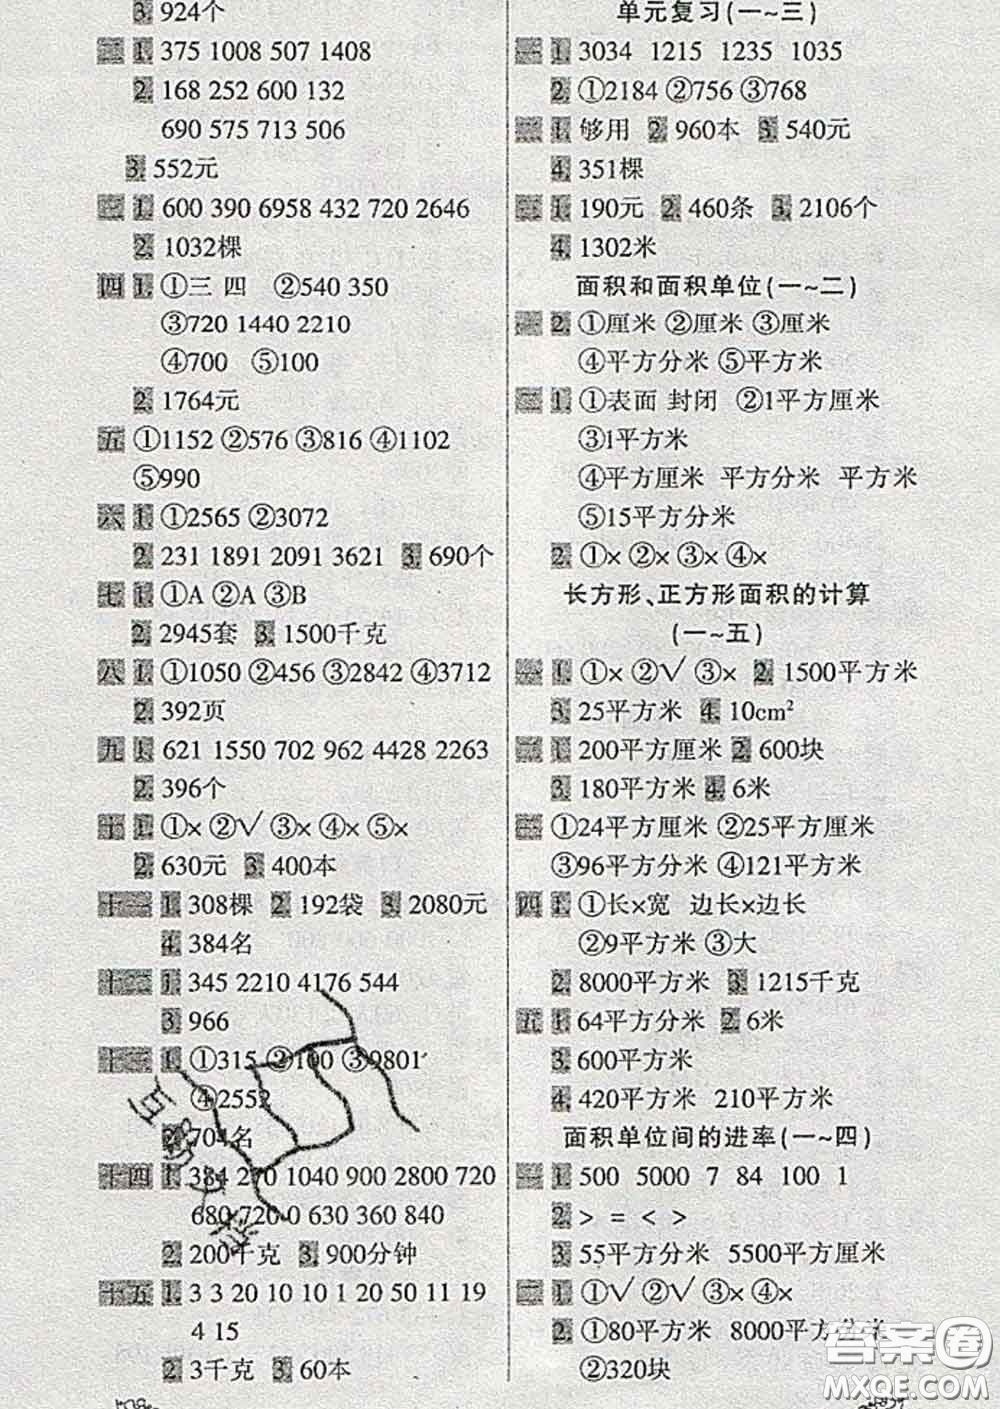 3. 924个
二 1. 375 1008 507 1408
2. 168 252 600 132
690 575 713 506
3. 552元
三 1. 600 390 6958 432 720 2646
2. 1032棵
四 1. ①三 四 ②540 350
③720 1440 2210
④700 ⑤100
2. 1764元
五 ①1152 ②576 ③816 ④1102
⑤990
六 1. ①2565 ②3072
2. 231 1891 2091 3621 3. 690个
七 1. ①A ②A ③B
2. 2945套 3. 1500千克
八 1. ①1050 ②456 ③2842 ④3712
2. 392页
九 1. 621 1550 702 962 4428 2263
2. 396个
十 1. ①× ②√ ③× ④× ⑤×
2. 630元 3. 400本
十一 1. 308棵 2. 192袋 3. 2080元
4. 384名
十二 1. 345 2210 4176 544
3. 966
十三 1. ①315 ②100 ③9801
④2552
2. 704名
十四 1. 384 270 1040 900 2800 720
680 720 0 630 360 840
2. 200千克 3. 900分钟
十五 1. 3 3 20 10 10 1 20 50 11 19
4 15
2. 3千克 3. 60本
单元复习(一~三)
一 1. 3034 1215 1235 1035
2. ①2184 ②756 ③768
二 1. 够用 2. 960本 3. 540元
4. 351棵
三 1. 190元 2. 460条 3. 2106个
4. 1302米
面积和面积单位(一~二)
一 2. ①厘米 ②厘米 ③厘米
④平方分米 ⑤平方米
二 1. ①表面 封闭 ②1平方厘米
③1平方米
④平方厘米 平方分米 平方米
⑤15平方分米
2. ①× ②× ③× ④×
长方形、正方形面积的计算
(一~五)
一 1. ①× ②√ ③× 2. 1500平方米
3. 25平方米 4. 10cm²
二 1. 200平方厘米 2. 600块
3. 180平方米 4. 6米
三 ①24平方厘米 ②25平方厘米
③96平方分米 ④121平方米
四 1. ①长×宽 边长×边长
②9平方米 ③大
2. 8000平方米 3. 1215千克
五 1. 64平方分米 2. 6米
3. 600平方米
4. 420平方米 210平方米
面积单位间的进率(一~四)
一 1. 500 5000 7 84 100 1
2. > = < >
3. 55平方分米 5500平方厘米
二 1. ①√ ②√ ③× ④×
2. ①80平方米 8000平方分米
②320块
答案圈
MXQE.COM